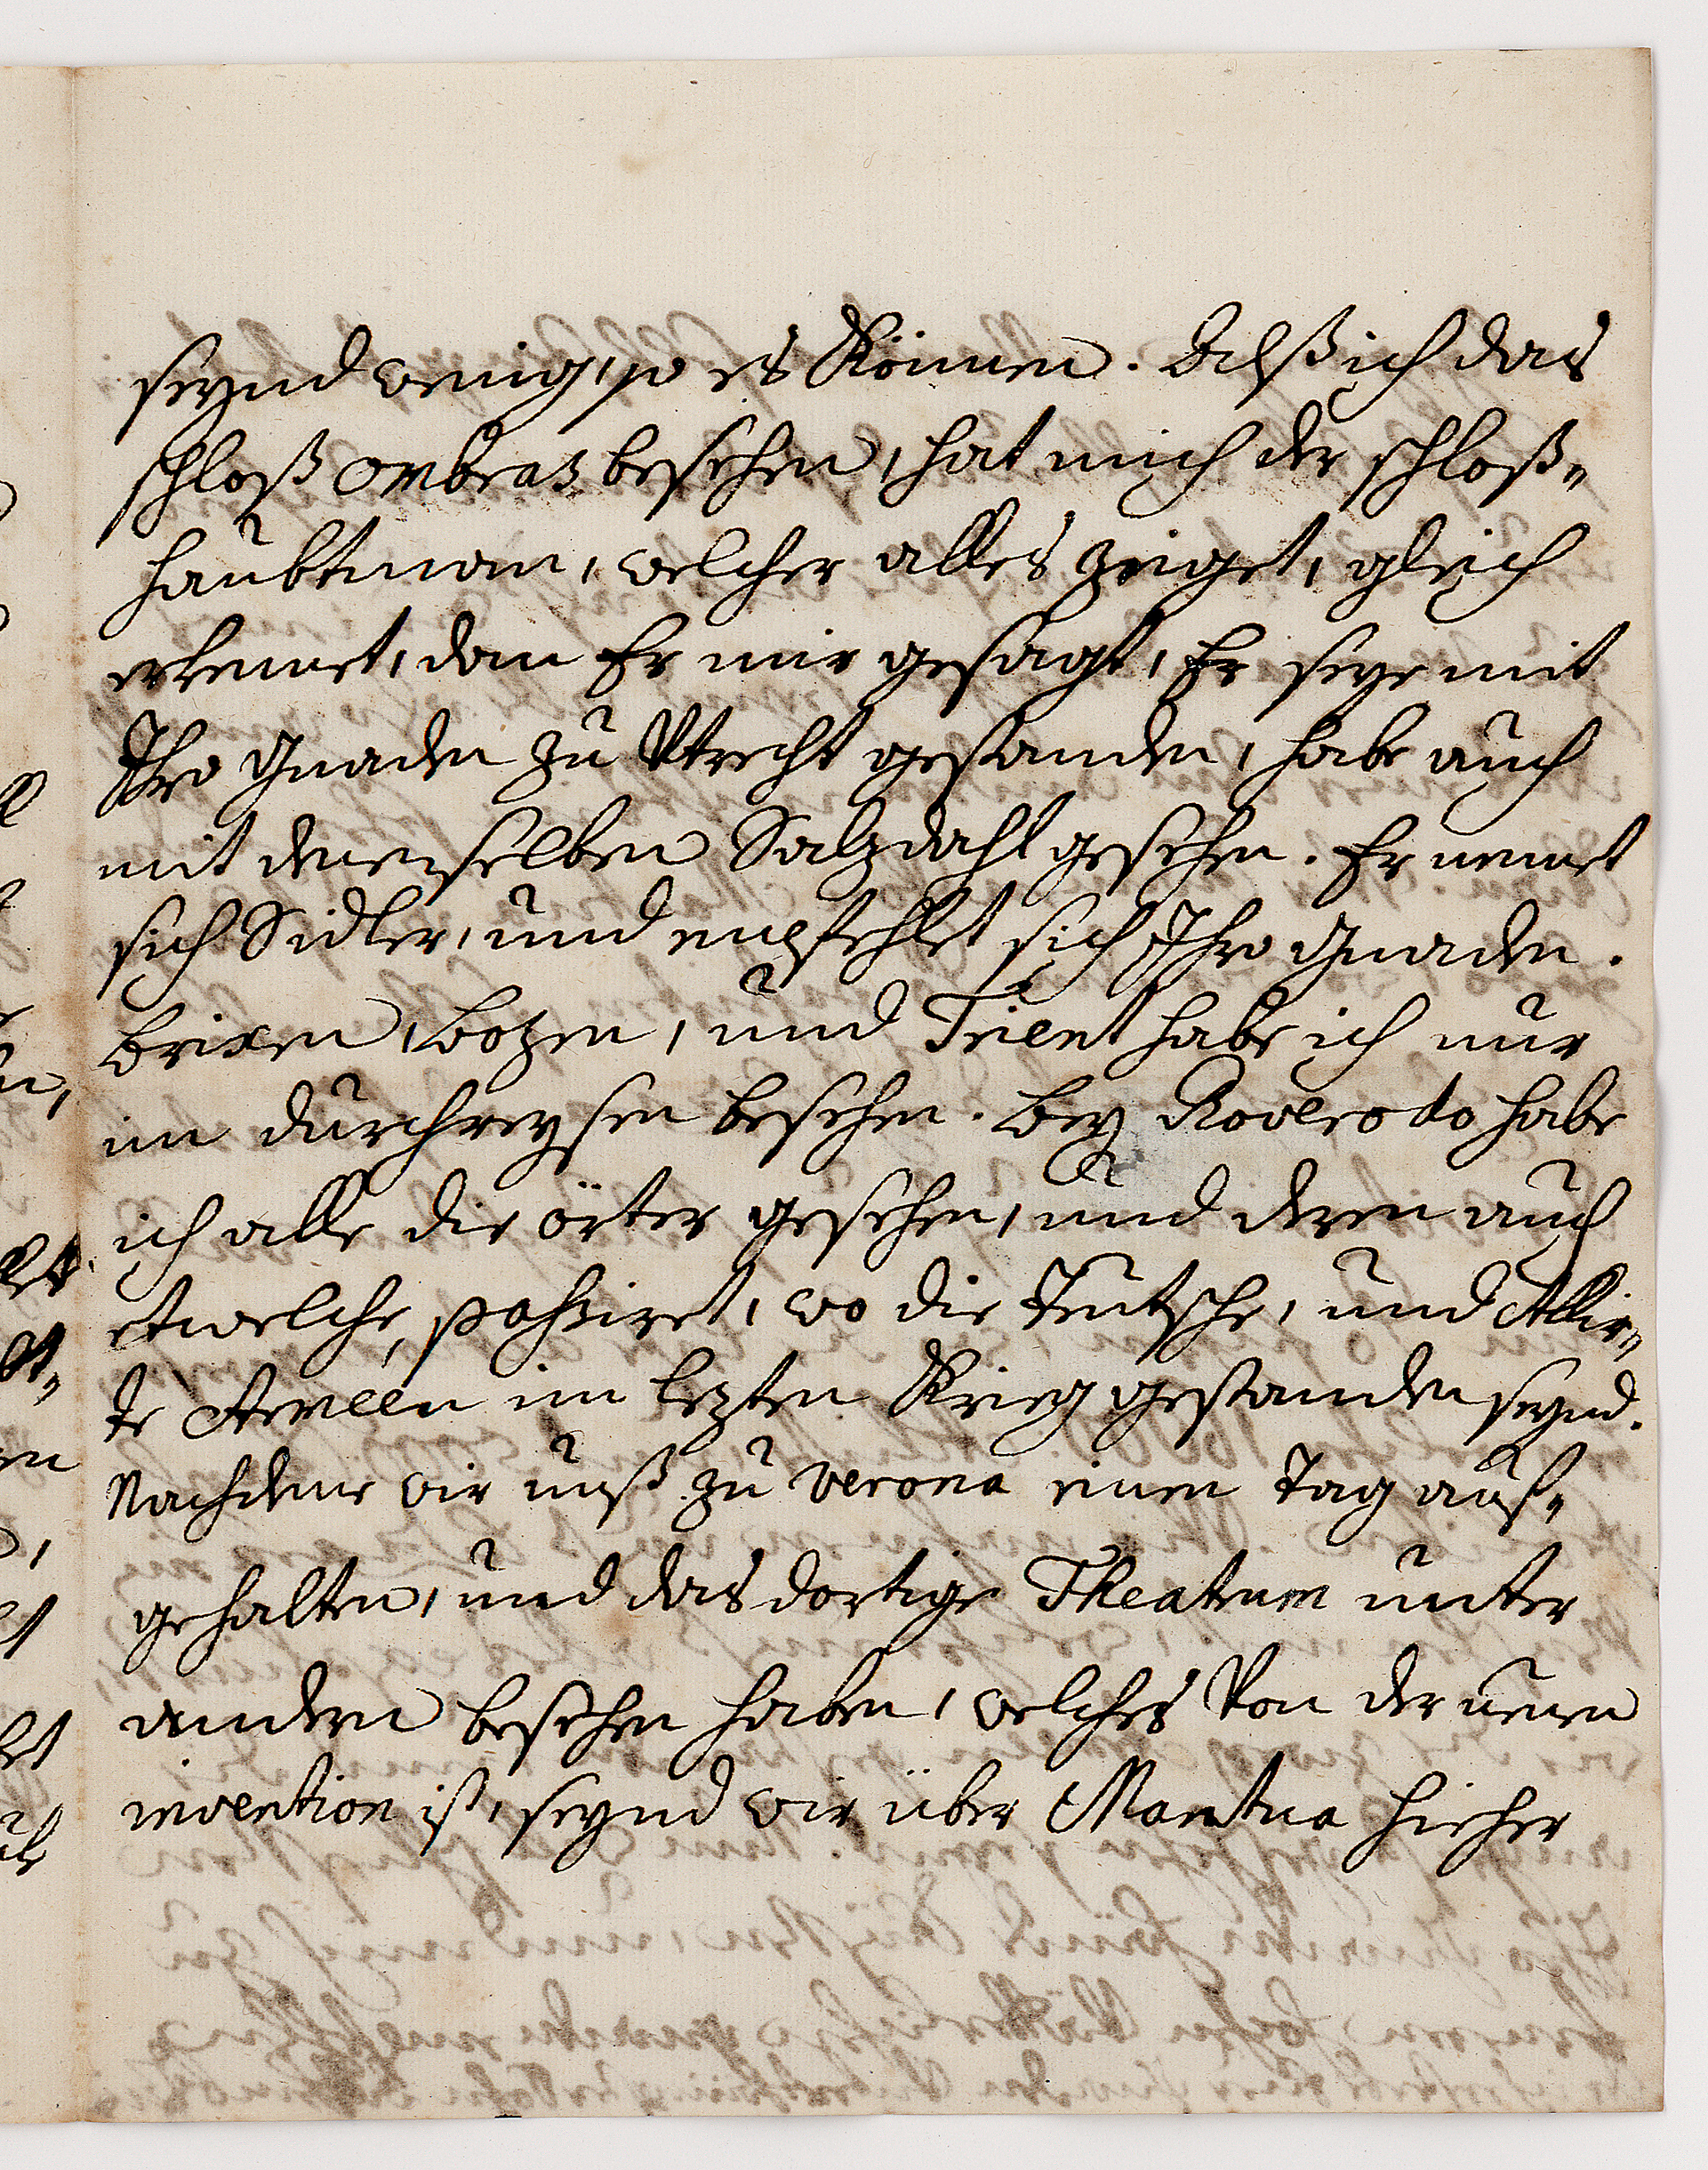 seynd wenig, so es können. Alß ich das
schloß Ombras besehen, hat mich der schloß„
haubtman, welcher alles zeiget, gleich
erkennet, dan Er mir gesagt, Er seye mit
Ihro Gnaden zu Utrecht gestanden, habe auch
mit denenselben Salzdahl gesehen. Er nennet
sich Sidler, und empfehlet sich Ihro Gnaden.
Brixen, Botzen, und Trient habe ich nur
im durchreysen besehen. Bey Roveredo habe
ich alle die örter gesehen, und deren auch
etwelche passiret, wo die Teutsche, und Allir„
te Arméen im lezten Krieg gestanden seynd.
Nachdeme wir unß zu Verona einen Tag auf„
gehalten, und das dortige Theatrum unter
anderen besehen haben, welches von der neuen
invention ist, seynd wir über Mantua hieher